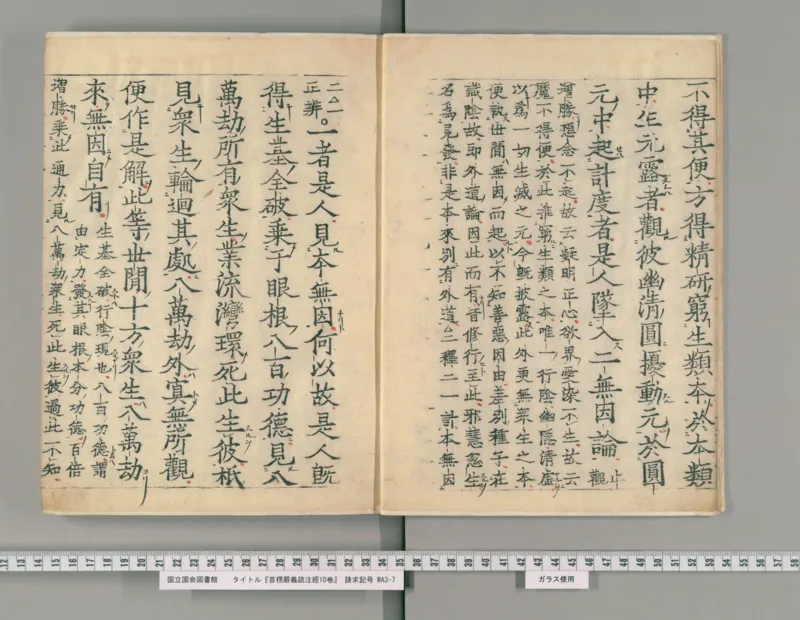 不得其便方得精研窮生類本於本類
中生元露者觀彼幽清圓擾動元於圓
元中起計度者是人墜入二無因論 止觀
增勝想念不起故云凝明正心欲界愛染不生故云
魔不得便於此漸窮生類之本唯一行陰幽隱清虛
以爲一切生滅之元今既披露此外更無衆生之本
便執世間無因而起以不知善惡因由差別種子在
識陰故即外道論因此而有昔修行至此邪慧忽生
名爲見發非是本來別有外道二釋二一計本無因
二二一
正辨。一者是人見本無因何以故是人既
得生基全破乘于眼根八百功德見八
萬劫所有衆生業流灣環死此生彼秖
見衆生輪迴其處八萬劫外冥無所觀
便作是解此等世間十方衆生八萬劫
來無因自有 生基全破行陰現也八百功德謂
由定力發其眼根本分功德百倍
增勝乘此通力見八萬劫衆生死此生彼過此不知
国立国会図書館 タイトル『首楞嚴義疏注經10巻』 請求記号 WA3-7
ガラス使用
12 13 14 15 16 17 18 19 20 21 22 23 24 25 26 27 28 29 30 31 32 33 34 35 36 37 38 39 40 41 42 43 44 45 46 47 48 49 50 51 52 53 54 55 56 57 58